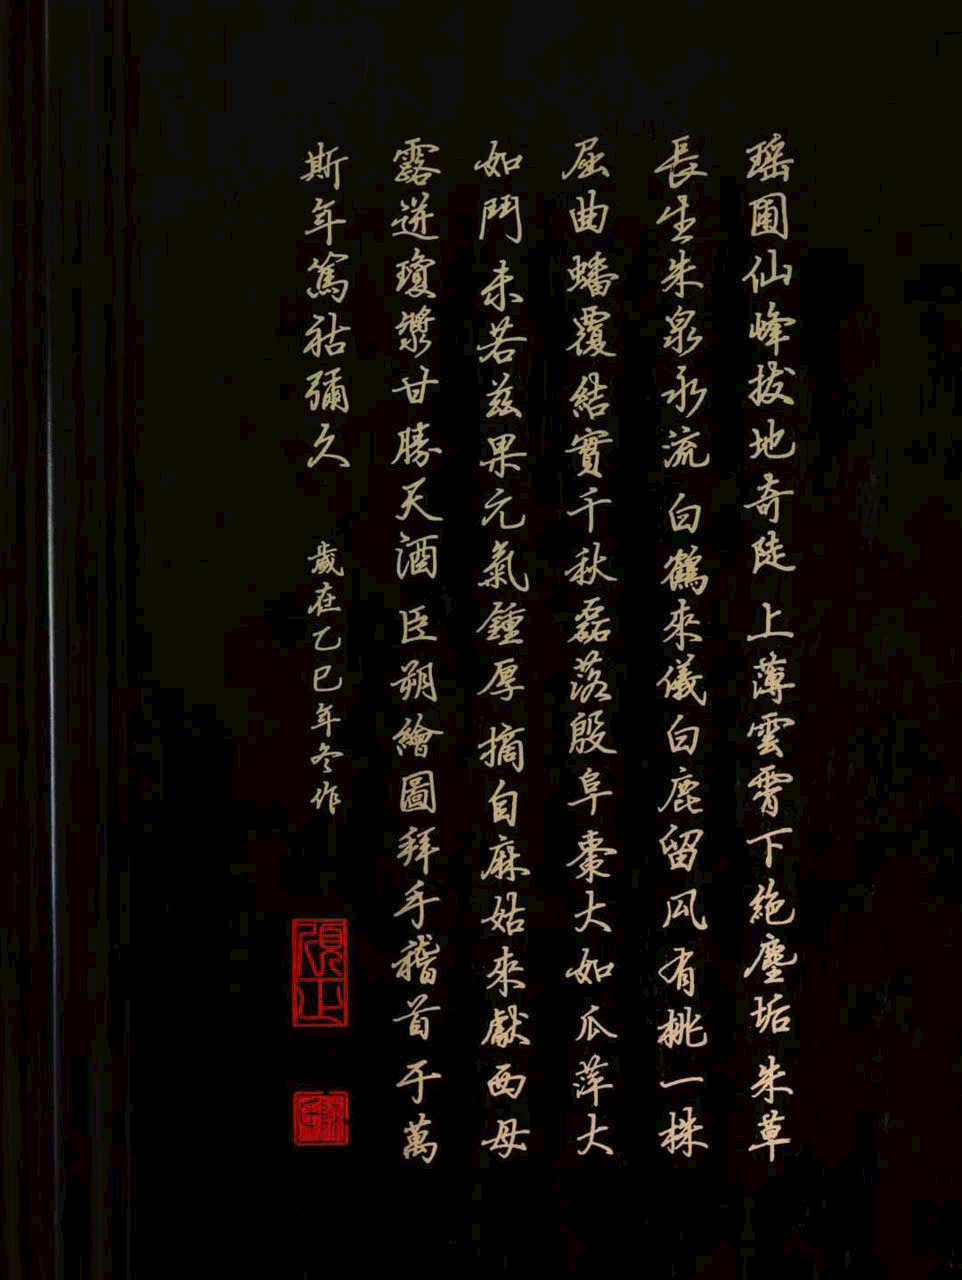 瑤圃仙峰拔地奇陡上薄雲霄下絶塵垢朱草
長生朱泉永流白鶴來儀白鹿留風有桃一株
屈曲蟠覆結實千秋磊落殷阜棗大如瓜萍大
如鬥未若茲果元氣鍾厚摘自麻姑來獻西母
露迸瓊漿甘勝天酒臣朔繪圖拜手稽首于萬
斯年篤祜彌久
歲在乙巳年冬作